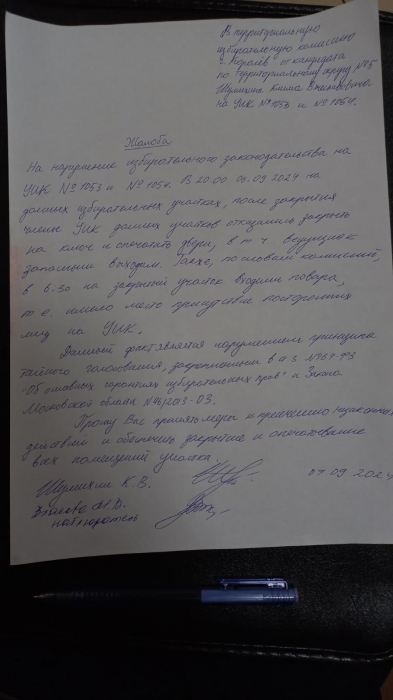 В территориальную
избирательную комиссию
г. Королёв от кандидата
по территориальному округу №5
Шумихина Кима
на УИК №1053 и №1054.
Жалоба
На нарушение избирательного законодательства на
УИК №1053 и №1054. В 20.00 06.09.2024 на
данных избирательных участках, после закрытия
члены УИК данных участков отказались закрыть
на ключ и опечатать двери, в т.ч. ведущие к
запасным выходам. Также, по словам комиссий,
в 6.30 на закрытый участок входили повара,
т.е. имело место присутствие посторонних
лиц на УИК.
Данный факт является нарушением принципа
тайного голосования, закрепленные в ФЗ №67-ФЗ
"Об основных гарантиях избирательных прав" и Закона
Московской области №46/2013-ОЗ.
Прошу Вас принять меры к пресечению незаконных
действий и обеспечить закрытие и опечатывание
всех помещений участка.
Шумихин К.В. 07.09.2024
наблюдатель